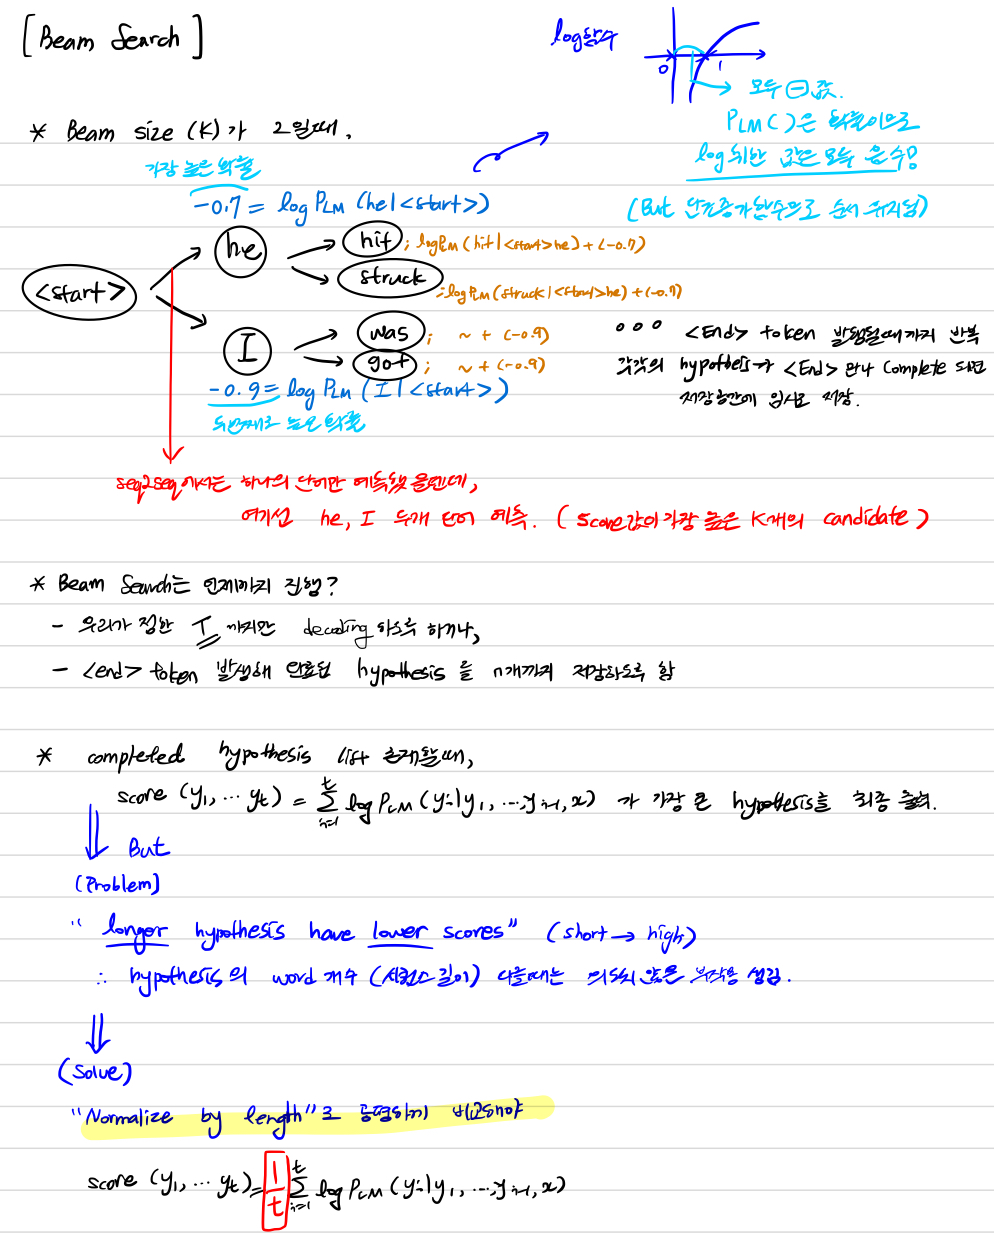 [Beam Search]
log함수
0
1
모두 ⊖값.
P_LM( )은 확률이므로
log취한 값은 모두 음수!
(But 단조증가함수으로 순서 유지됨)
* Beam size (K)가 2일때,
가장 높은 확률
-0.7 = log P_LM (he|<start>)
<start>
he
hit ; log P_LM (hit|<start>he) + (-0.7)
struck ; log P_LM (struck|<start>he) + (-0.7)
I
was ; ~ + (-0.9)
got ; ~ + (-0.9)
-0.9 = log P_LM (I|<start>)
두번째로 높은 확률
∘∘∘ <End> token 발생될때까지 반복
각각의 hypothesis → <End> 만나 complete 되면
저장공간에 임시로 저장.
seq2seq에서는 하나의 단어만 예측했을텐데,
여기선 he, I 두개 단어 예측. (score값이 가장 높은 K개의 candidate)
* Beam Search는 언제까지 진행?
- 우리가 정한 T 까지만 decoding 하도록 하거나,
- <end> token 발생해 완료된 hypothesis 을 n개까지 저장하도록 함
* completed hypothesis list 존재할때,
score (y₁, ⋯ y_t) = Σ_{i=1}^{t} log P_LM (y_i|y₁, ⋯, y_{i-1}, x) 가 가장 큰 hypothesis를 최종 출력.
⇓ But
(Problem)
"longer hypothesis have lower scores" (short → high)
∴ hypothesis의 word 개수 (시퀀스 길이) 다를때는 의도치 않은 부작용 생김.
⇓
(Solve)
"Normalize by length"로 공평하게 비교해야
score (y₁, ⋯ y_t) = 1/t Σ_{i=1}^{t} log P_LM (y_i|y₁, ⋯, y_{i-1}, x)